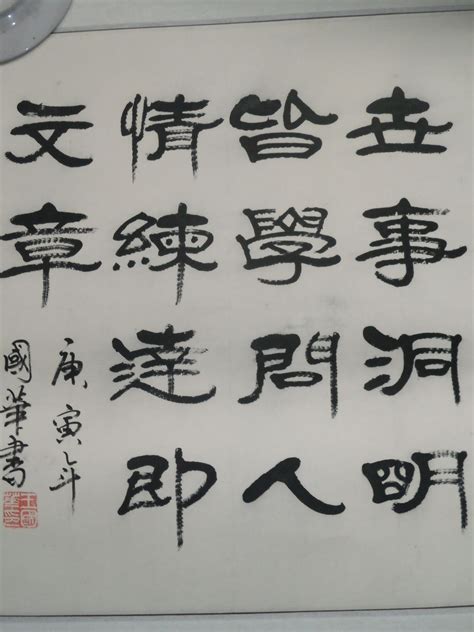 世事洞明
皆學問人
情練達即
文章
庚寅年
國華書